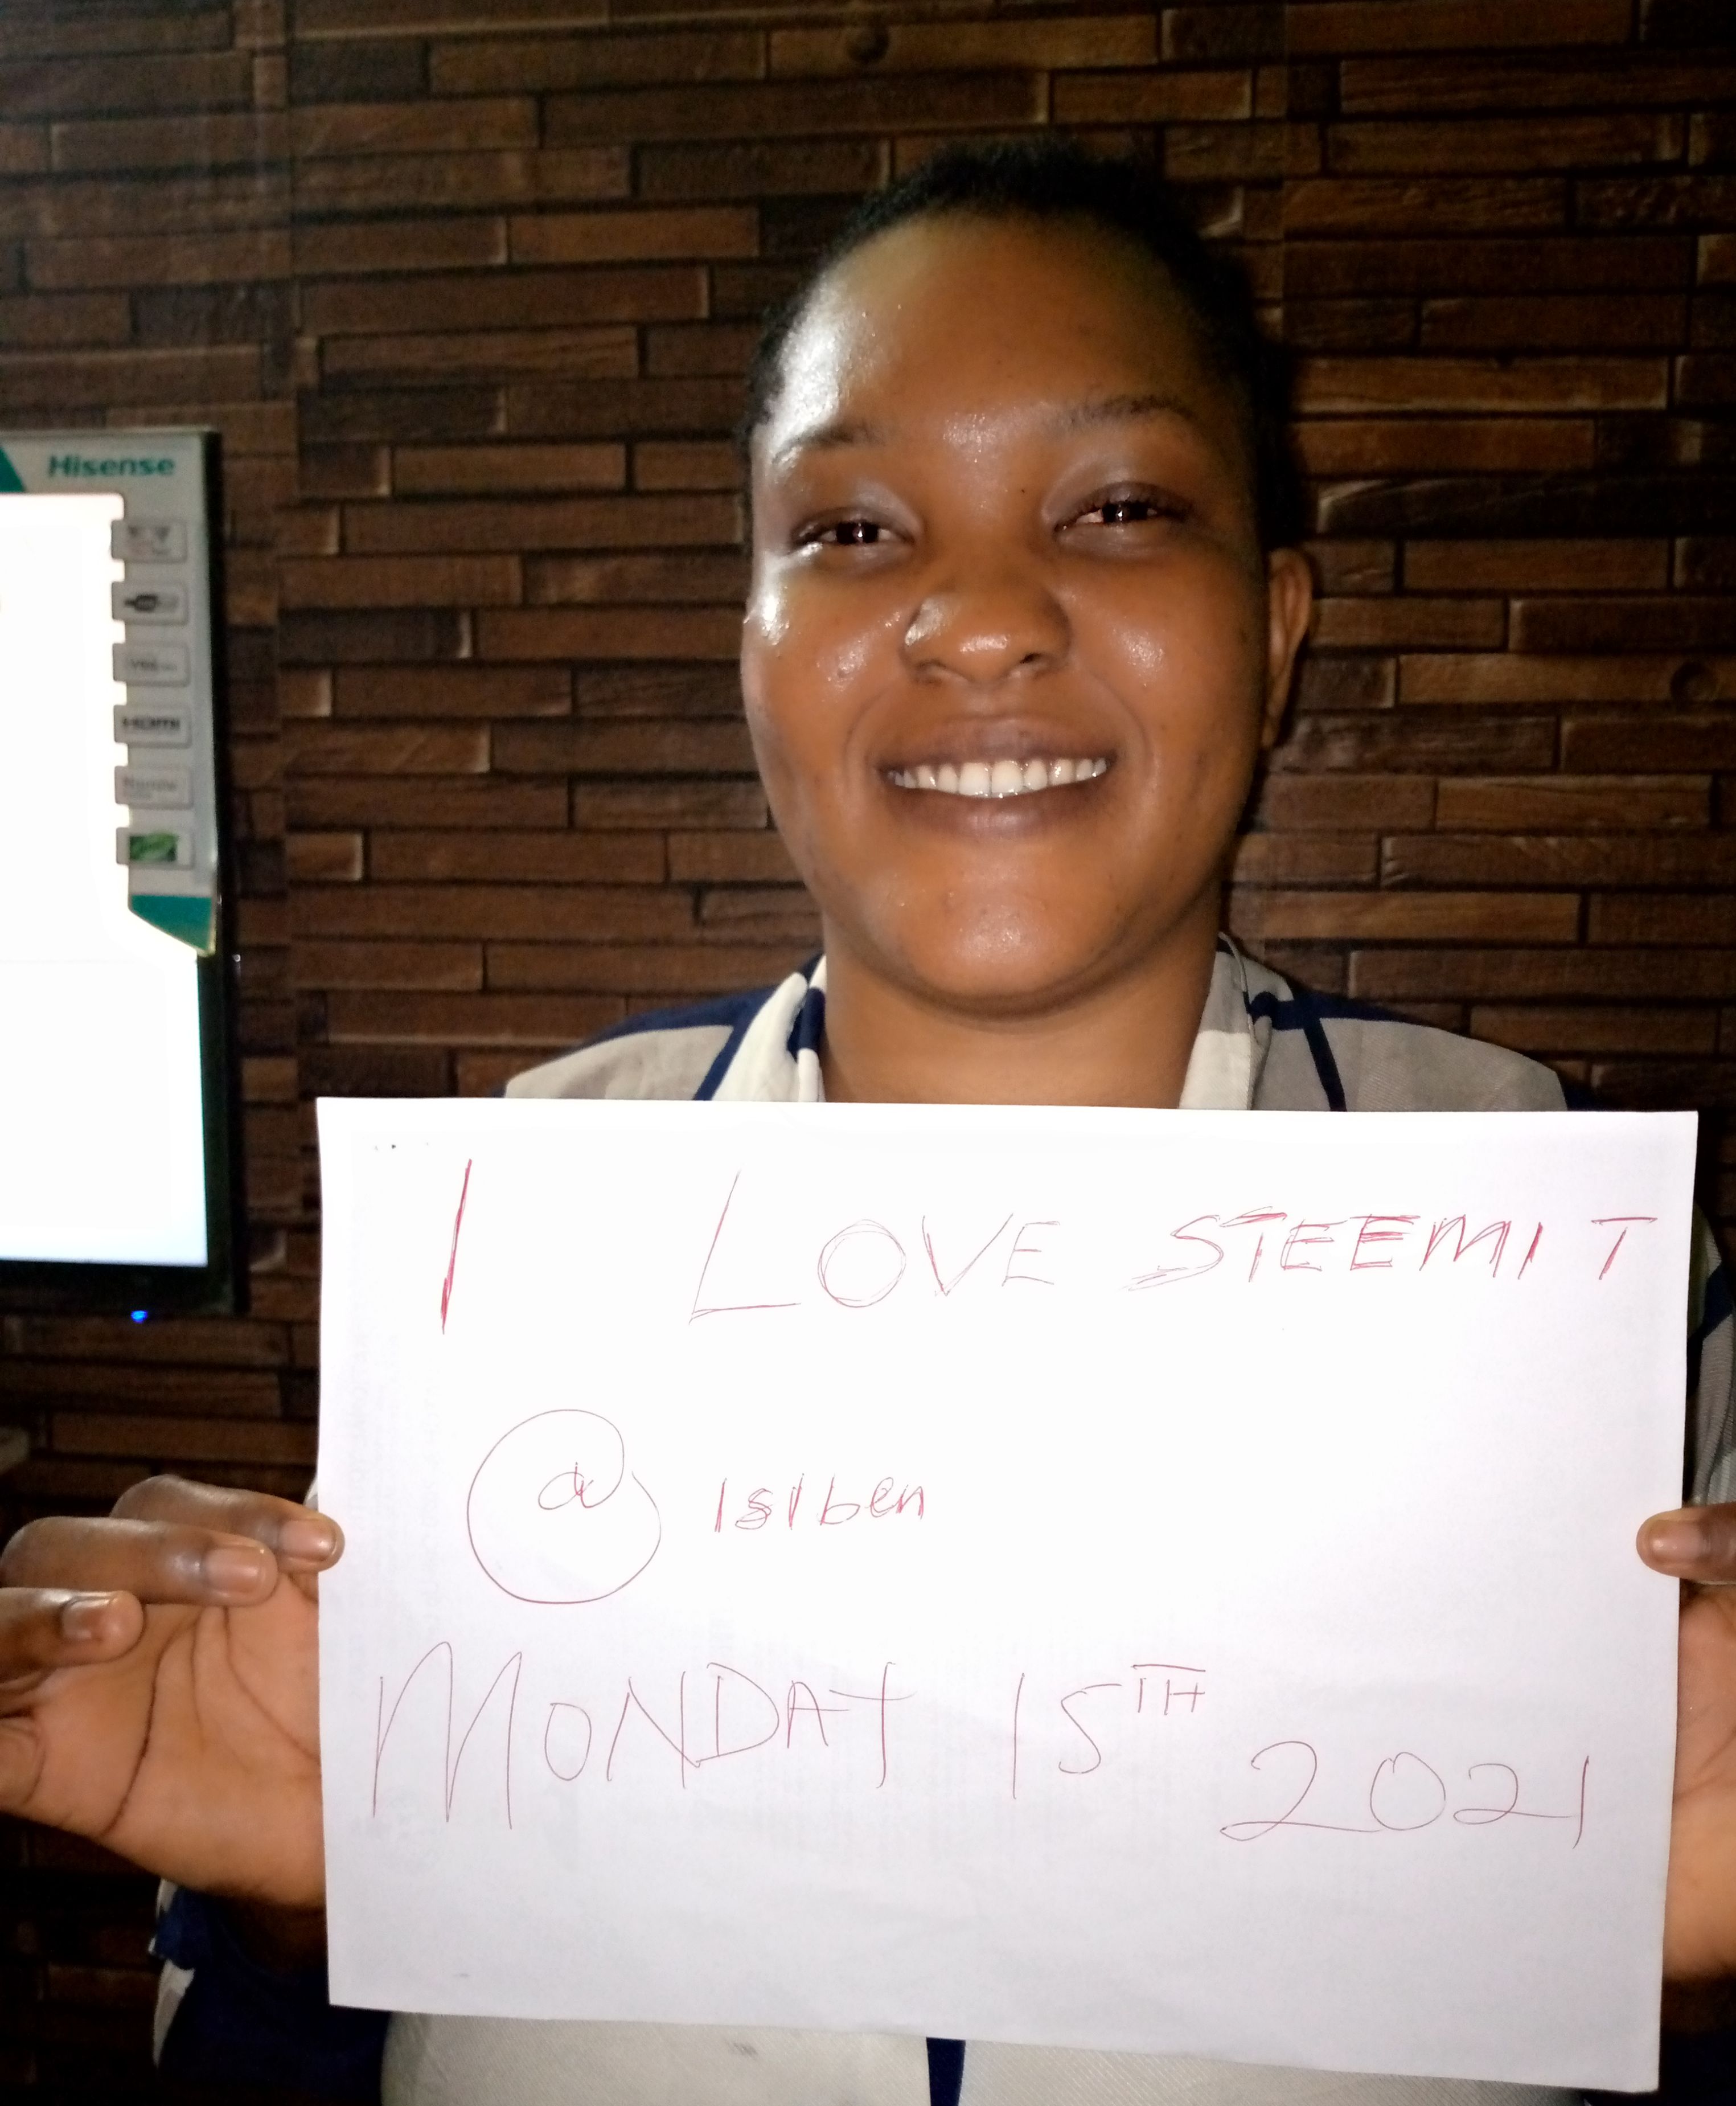 Hisense
HDMI
I LOVE STEEMIT
@ isiben
MONDAY 15TH 2021